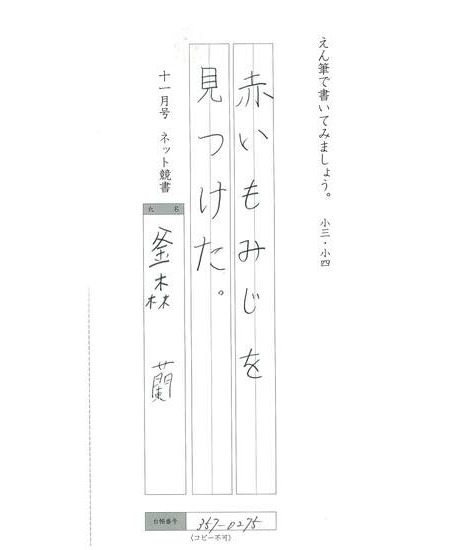 えん筆で書いてみましょう。 小三・小四
赤いもみじを
見つけた。
十一月号 ネット競書
氏 名
釜森 蘭
台帳番号 357-0275
(コピー不可)